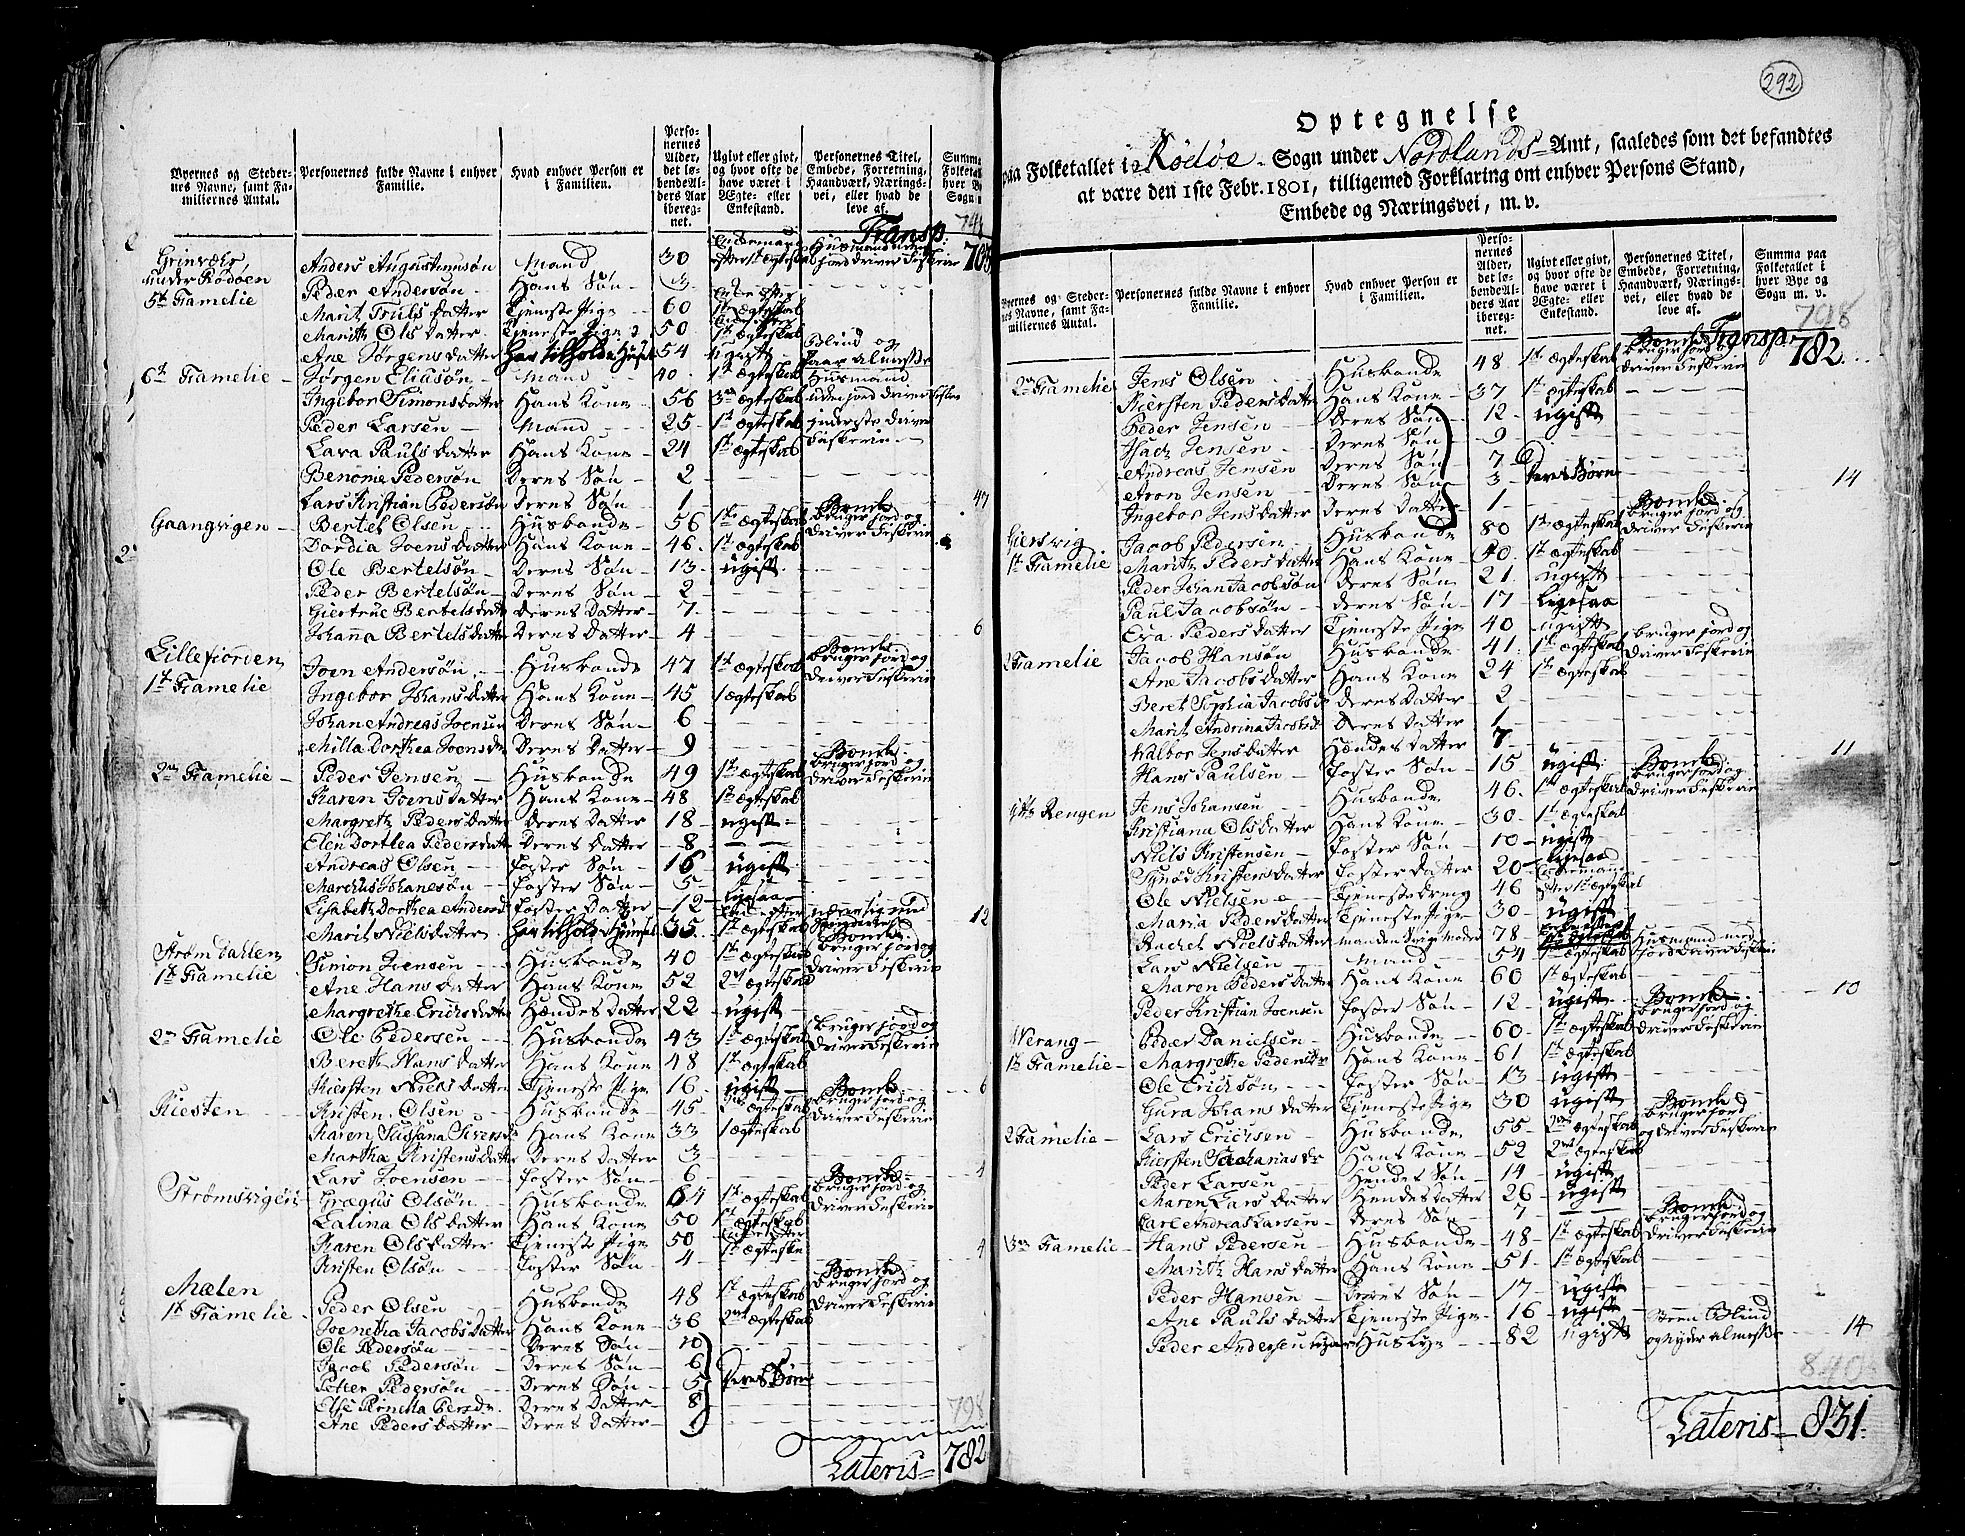 Byernes og Steder-
nes Navne, samt Fa-
miliernes Antal.
Personernes fulde Navne i enhver
Familie.
Hvad enhver Person er
i Familien.
Perso-
nernes
Alder,
det lø-
bende Al-
ders Aar
iberег-
net.
Ugivt eller givt,
og hvor ofte de
have været i
Ægte- eller
Enkestand.
Personernes Titel,
Embede, Forretning,
Haandværk, Nærings-
vei, eller hvad de
leve af.
Transp.
Grinvær
under Rödoen
5te Famelie
Anders Augustinusøn Mand 30
Peder Andersøn Hans Søn 3
Marit Truls datter Tjeneste Pige 60
Marith Ols datter Tjeneste Pige 50
Ane Jørgensdatter 54 ugift Blind og
6te Famelie Jørgen Eliasøn Mand 40 1te ægteskab Husmand
Ingebor Simonsdatter Hans Kone 56 3die ægteskab
Peder Larsen Mand 25 1te ægteskab
Lava Pauls datter Hans Kone 24 1te ægteskab
Benonie Pedersøn Deres Søn 2
Lars Kristian Pedersøn Deres Søn 1 47
Gaasvigen Bertel Olsen Husbonde 56 1te ægteskab Bonde bruger jord og
Dordia Joens datter Hans Kone 46 1te ægteskab driver Fiskerie
Ole Bertelsøn Deres Søn 13 ugift
Peder Bertelsøn Deres Søn 2
Giertrue Bertelsdatter Deres Datter 7
Johana Bertelsdatter Deres Datter 4 6
Lillefiorden
1te Famelie
Joen Andersøn Husbonde 47 1te ægteskab Bonde bruger jord og driver Fiskerie
Ingebor Johans datter Hans Kone 45 1 ægteskab
Johan Andreas Joensen Deres Søn 6
Milla Dorthea Joensdr Deres Datter 9
2den Famelie Peder Jensen Husbonde 49 1te ægteskab Bonde bruger jord og driver Fiskerie
Karen Joens datter Hans Kone 48 1te ægteskab
Margreth Pedersdatter Deres Datter 18 ugift
Elen Dorthea Pedersdatt Deres Datter 8
Andreas Olsen Foster Søn 16 ugift
Marchus Johanesøn Foster Søn 5
Lisabeth Dorthea Andersd Foster Datter 12 ligesaa
Marit Nielsdatter 35 12
Strømdahlen
1te Famelie
Simon Joensen Husbonde 40 1te ægteskab Bonde bruger jord og driver Fiskerie
Ane Hans datter Hans Kone 52 2det ægteskab
Margrethe Erichsdatter Hendes Datter 22 ugift
2den Famelie Ole Pedersen Husbonde 43 1te ægteskab bruger jord og driver Fiskerie
Bereth Hans datter Hans Kone 48 1te ægteskab
Kiersten Niels datter Tjeneste Pige 16 ugift 6
Kiesten Kristen Olsen Husbonde 45 2det ægteskab Bonde bruger jord og driver Fiskerie
Karen Susana Siversd Hans Kone 33 1 ægteskab
Martha Kristensdatter Deres Datter 3
Lars Joensen Foster Søn 6 4
Strømsvigen Gragus Olsøn Husbonde 64 1te ægteskab Bonde bruger jord og driver Fiskerie
Lalina Ols datter Hans Kone 50 1te ægteskab
Karen Olsdatter Tjeneste Pige 50
Kristen Olsøn Foster Søn 4 4
Mælen
1te Famelie
Peder Olsen Husbonde 48 1te ægteskab Bonde bruger jord og driver Fiskerie
Joenetha Jacobs datter Hans Kone 36 2det ægteskab
Ole Pedersøn Deres Søn 10
Jacob Pedersøn Deres Søn 6
Petter Pedersøn Deres Søn 5 Deres Børn
Else Pernella Persdr. Deres Datter 8
Ane Pedersdatter Deres Datter 1
798
Lateris 782
292
Optegnelse
paa Folketallet i Rödöe Sogn under Nordlands Amt, saaledes som det befandtes
at være den 1ste Febr. 1801, tilligemed Forklaring om enhver Persons Stand,
Embede og Næringsvei, m. v.
Byernes og Steder-
nes Navne, samt Fa-
miliernes Antal.
Personernes fulde Navne i enhver
Familie.
Hvad enhver Person er
i Familien.
Perso-
nernes
Alder,
det lø-
bende Al-
ders Aar
ibereg-
net.
Ugivt eller givt,
og hvor ofte de
have været i
Ægte- eller
Enkestand.
Personernes Titel,
Embede, Forretning,
Haandværk, Nærings-
vei, eller hvad de
leve af.
Summa paa
Folketallet i
hver Bye og
Sogn m. v.
798
Transp. 782
2den Famelie Jens Olsen Husbonde 48 1te ægteskab Bonde bruger jord og driver Fiskerie
Kiersten Pedersdatter Hans Kone 37 1te ægteskab
Peder Jensen Deres Søn 12 ugift
Isach Jensen Deres Søn 9
Andreas Jensen Deres Søn 7
Aron Jensen Deres Søn 3 Deres Børn
Ingebor Jensdatter Deres Datter 1 14
Gierswig
1te Famelie
Jacob Pedersen Husbonde 80 1te ægteskab Bonde bruger jord og driver Fiskerie
Marith Pedersdatter Hans Kone 40 1te ægteskab
Peder Johan Jacobsøn Deres Søn 21 ugift
Paul Jacobsøn Deres Søn 17 ligesaa
Eva Pedersdatter Tjeneste Pige 40 ugift
2 Famelie Jacob Hansøn Husbonde 41 1te ægteskab bruger jord og driver Fiskerie
Ane Jacobsdatter Hans Kone 24 1te ægteskab
Beret Sophia Jacobsd Deres Datter 2
Marit Andrina Jacobsd Deres Datter 1
Walbor Jensdatter Hendes Datter 7
Hans Paulsen Foster Søn 15 ugift 11
Rengen Jens Johansen Husbonde 46 1te ægteskab Bonde bruger jord og driver Fiskerie
Kristiana Olsdatter Hans Kone 30 1te ægteskab
Niels Kristensen Foster Søn 10 ugift
Synod Kristensdatter Foster Datter 20 ligesaa
Ole Nielsen Tjenestedreng 46
Maria Pedersdatter Tjeneste Pige 30 ugift
Rachel Nielsdatter 78
Lars Nielsen Mand 54 1te ægteskab Husmand med jord driver Fiskerie
Maren Pedersdatter Hans Kone 60 1te ægteskab
Peder Kristian Joensen Foster Søn 12 ugift 10
Werang
1te Famelie
Peder Danielsen Husbonde 60 1te ægteskab Bonde bruger jord og driver Fiskerie
Margrethe Pedersdr Hans Kone 61 1te ægteskab
Ole Erichsøn Foster Søn 13 ugift
Gura Johans datter Tjeneste Pige 30 ugift
2 Famelie Lars Erichsen Husbonde 55 2den ægteskab Bonde bruger jord og driver Fiskerie
Kiersten Sacharias dr Hans Kone 52 2det ægteskab
Peder Larsen Hendes Søn 14 ugift
Maren Lars datter Hendes Datter 26 ugift
Carl Andreas Larsen Deres Søn 7
3die Famelie Hans Pedersen Husbonde 48 1te ægteskab Bonde bruger jord og driver Fiskerie
Marith Hans datter Hans Kone 51 1te ægteskab
Peder Hansen Deres Søn 17 ugift
Ane Pauls datter Tjeneste Pige 16 ugift
Peder Andersen 82 ugift Blind og nyder almisse 14
840
Lateris 831